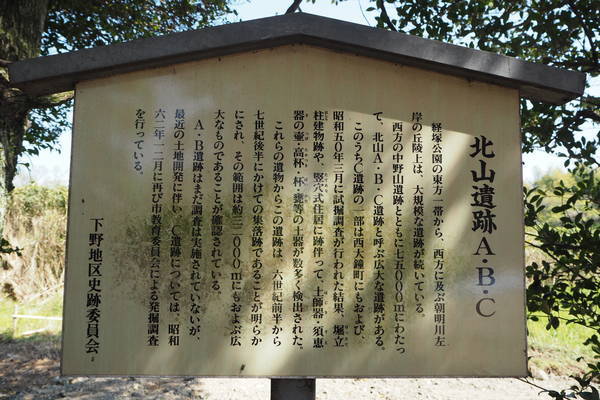 北山遺跡A・B・C
経塚公園の東方一帯から、西方に及ぶ朝明川左
岸の丘陵上は、大規模な遺跡が続いている。
西方の中野山遺跡とともに七五〇〇〇㎡にわたっ
て、北山A・B・C遺跡と呼ぶ広大な遺跡がある。
このうちC遺跡の一部は西大鐘町にもおよび、
昭和五〇年二月に試掘調査が行われた結果、堀立
柱建物跡や、竪穴式住居に跡伴って、土師器・須恵
器の壺・高杯・杯・甕等の土器が数多く検出された。
これらの遺物からこの遺跡は、六世紀前半から
七世紀後半にかけての集落跡であることが明らか
にされ、その範囲は約三二〇〇〇㎡にもおよぶ広
大なものであることが確認されている。
A・B遺跡はまだ調査は実施されていないが、
最近の土地開発に伴い、C遺跡については、昭和
六二年一二月に再び市教育委員会による発掘調査
を行っている。
下野地区史跡委員会